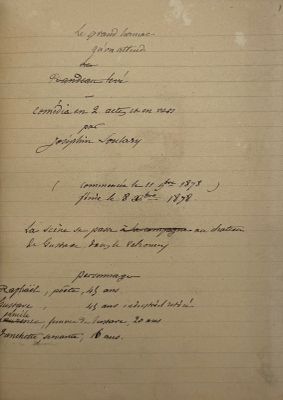 Le grand homme
qu'on attend
Le
Rideau levé
comédie en 2 actes et en vers
par
Joséphin Soulary
( commencée le 11 9bre 1878 )
finie le 8 Xbre 1878
La scène se passe à la campagne au château
de Gustave dans le
personnage
Raphaël, poète, 45 ans.
Gustave 45 ans industriel retiré
Laurence, femme de Gustave, 20 ans
Fanchette, servante, 16 ans.